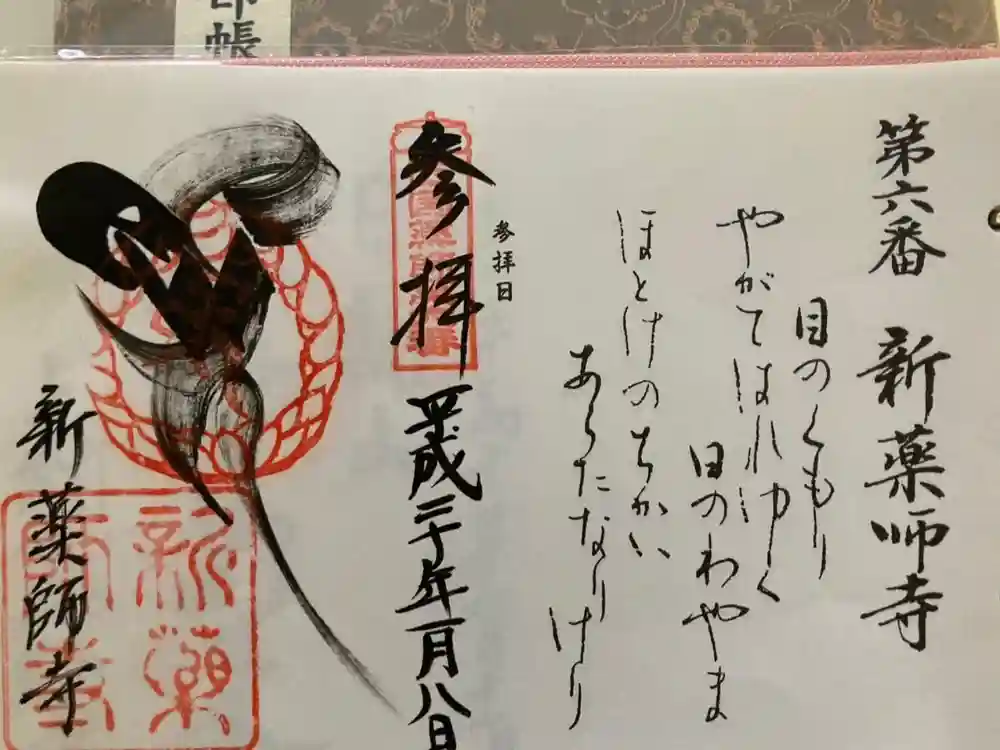 帳
第六番 新薬師寺
目のくもり
やがてはれゆく
日のわやま
ほとけのちかい
あらたなりけり
参拝日
参拝
平成三十年一月八日
新薬師寺